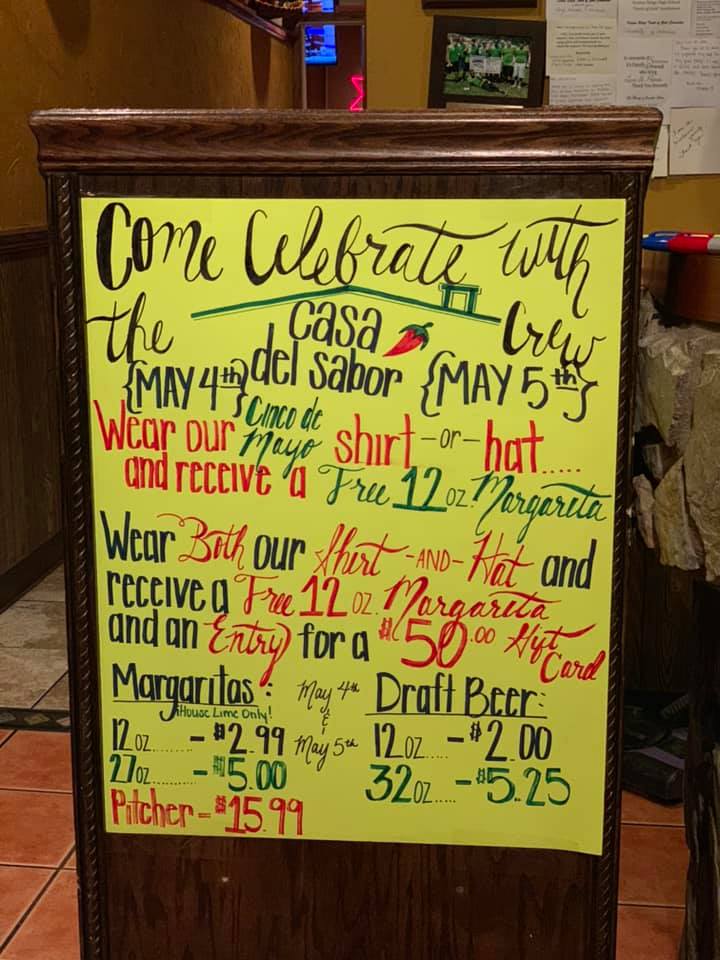 Come Celebrate with
the casa del sabor Crew
{MAY 4th} {MAY 5th}
Wear our Cinco de Mayo shirt -or- hat.....
and receive a Free 12 oz. Margarita
Wear Both our Shirt -AND- Hat and
receive a Free 12 oz. Margarita
and an Entry for a $50.00 Gift Card
Margaritas:
House Lime Only!
12 oz........ - $2.99
27 oz......... - $5.00
Pitcher - $15.99
May 4th
&
May 5th
Draft Beer:
12 oz..... - $2.00
32 oz..... - $5.25